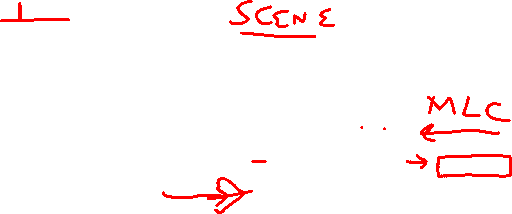 SCENE
MLC